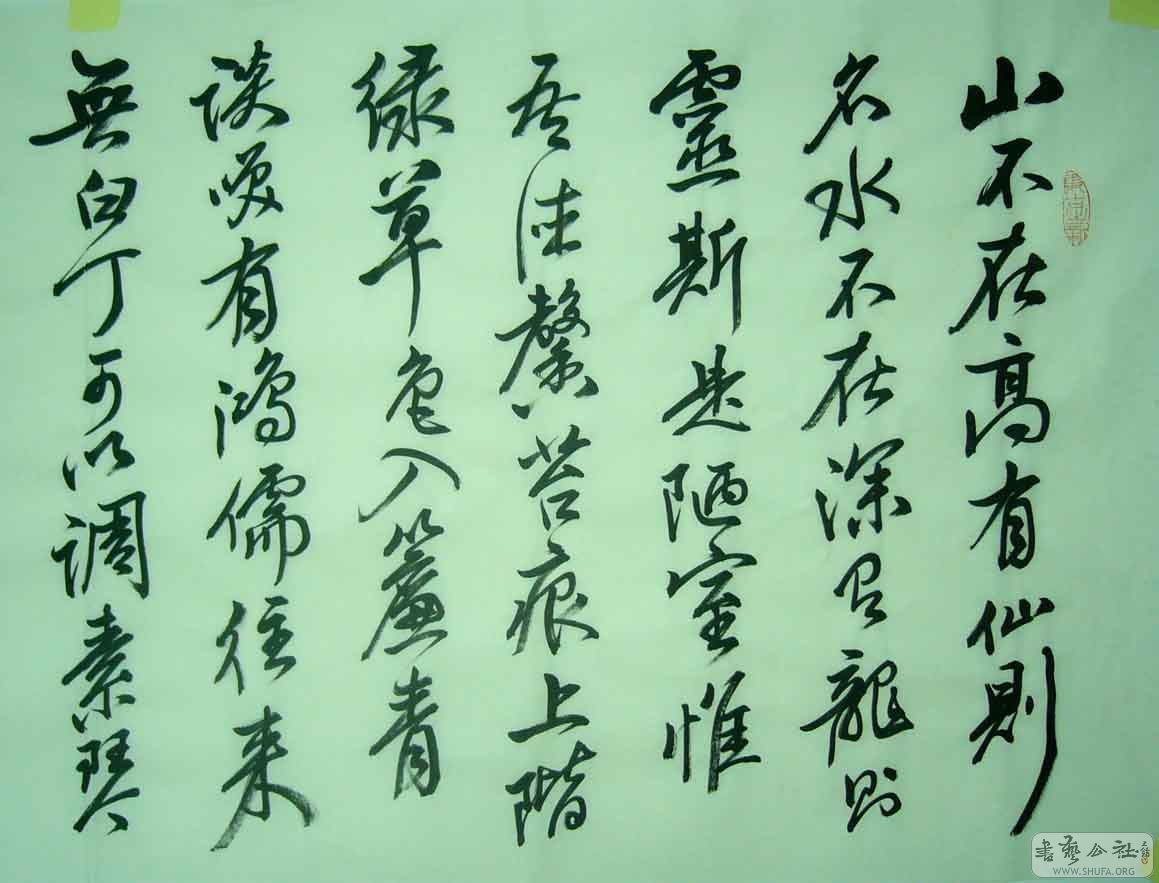 山不在高有仙則
名水不在深有龍則
靈斯是陋室惟
吾德馨苔痕上階
绿草色入簾青
談笑有鴻儒往来
無白丁可以调素琴
书艺公社
WWW.SHUFA.ORG